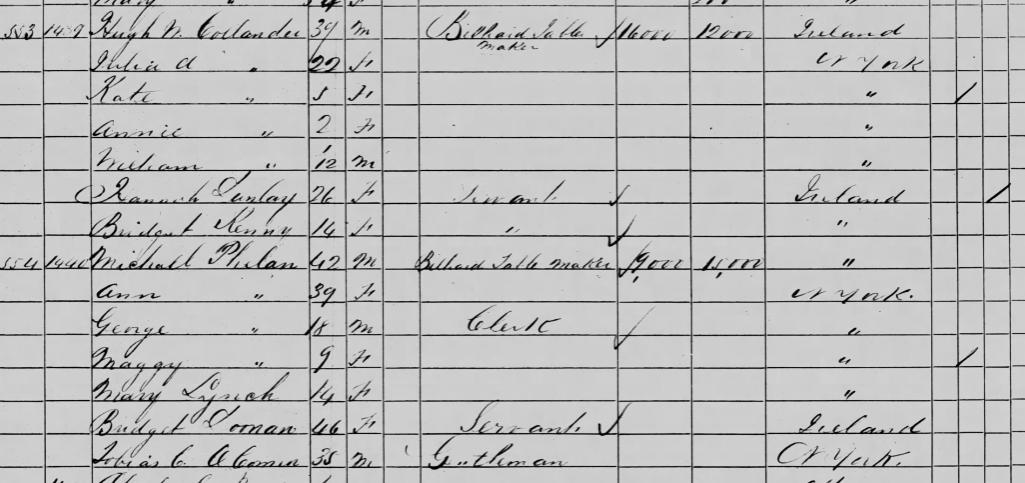 553 1439 Hugh W Collander 39 M Billiard Table maker 16000 12000 Ireland
Julia A " 22 F N York
Kate " 5 F " /
Annie " 2 F "
William " 1/12 M "
Hannah 26 F Servant Ireland /
Bridget Kenny 14 F " "
554 1440 Michael Phelan 42 M Billiard Table Maker 15000 "
Ann " 39 F N York.
George " 18 M Clerk "
Maggy " 9 F " /
Mary Lynch 14 F "
Bridget Noonan 46 F Servant Ireland
Tobias C 35 M Gentleman N York.